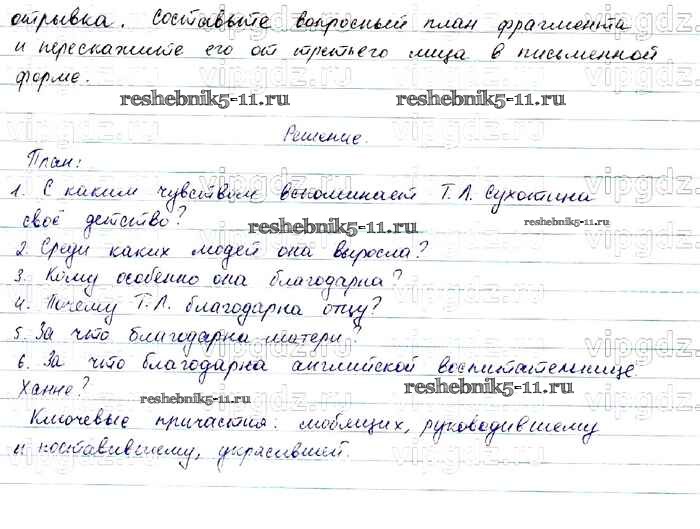 отрывка. Составьте вопросный план фрагмента
и перескажите его от третьего лица в письменной
форме.
reshebnik5-11.ru reshebnik5-11.ru
Решение.
План:
1. С каким чувством вспоминает Т.Л. Сухотина
своё детство?
reshebnik5-11.ru reshebnik5-11.ru
2. Среди каких людей она выросла?
3. Кому особенно она благодарна?
4. Почему Т.Л. благодарна отцу?
5. За что благодарна матери?
6. За что благодарна английской воспитательнице
Ханне?
reshebnik5-11.ru reshebnik5-11.ru
Ключевые причастия: любящих, руководившему
и поставившему, украсившей.
vipgdz.ru